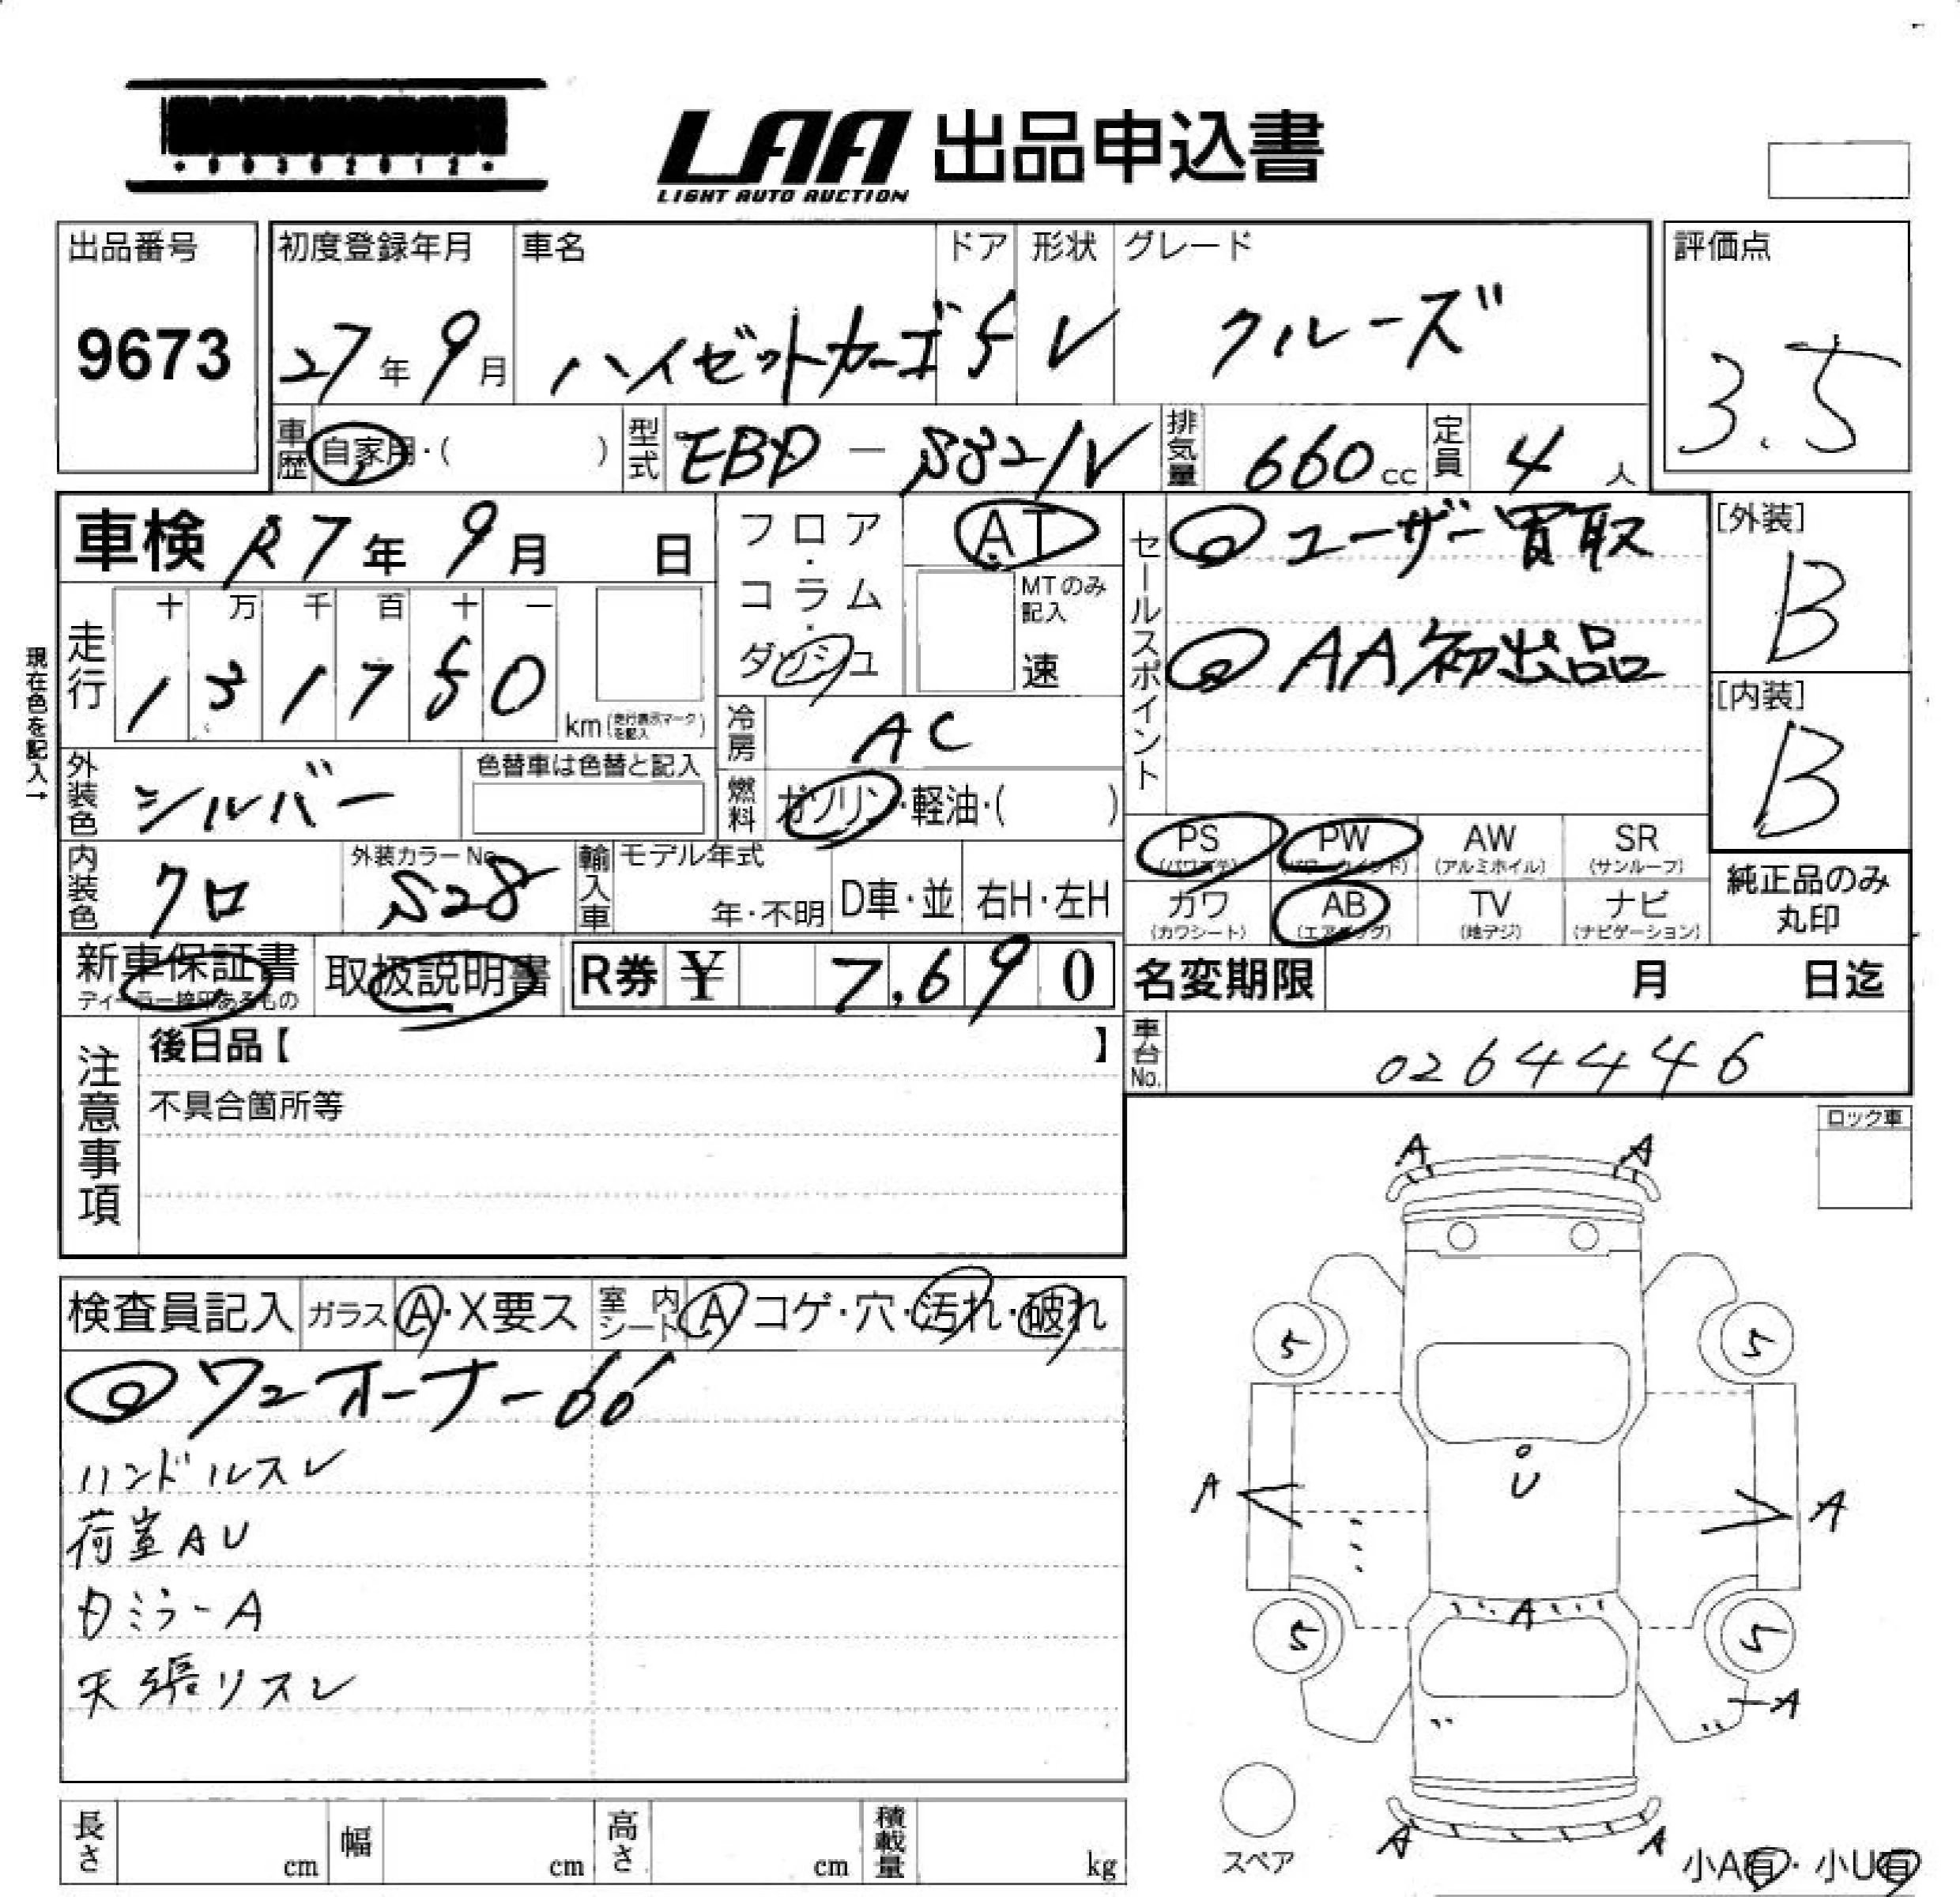 ・00302012・
LAA 出品申込書
LIGHT AUTO AUCTION
出品番号
9673
初度登録年月 車名 ドア 形状 グレード
27年 9月 ハイゼットカーゴ 5 V クルーズ
評価点
3.5
車歴 自家用・( ) 型式 EBD-S321V 排気量 660cc 定員 4人
車検 R7年 9月 日
フロア・コラム・ダッシュ
AT
MTのみ記入
速
セールスポイント
◎ユーザー買取
◎AA初出品
[外装]
B
[内装]
B
現在色を記入→
走行 十 万 千 百 十 一
1 3 1 7 5 0 km (走行表示マークを記入)
冷房 AC
外装色 シルバー 色替車は色替と記入
燃料 ガソリン・軽油・( )
内装色 クロ 外装カラーNo. S28
輸入車 モデル年式 年・不明 D車・並 右H・左H
PS (パワステ) PW (パワーウインド) AW (アルミホイル) SR (サンルーフ)
カワ (カワシート) AB (エアバッグ) TV (地デジ) ナビ (ナビゲーション)
純正品のみ
丸印
新車保証書 取扱説明書 R券 ¥ 7,690
ディーラー捺印あるもの
名変期限 月 日迄
車台No. 0264446
注意事項
後日品【 】
不具合箇所等
ロック車
検査員記入 ガラス A・X要ス 室内シート A コゲ・穴・汚れ・破れ
◎ワンオーナー
ハンドルスレ
荷室AU
内ミラーA
天張リスレ
A A
5 5
U
A A
A
5 5
A
A A
スペア
小A有・小U有
長さ cm 幅 cm 高さ cm 積載量 kg